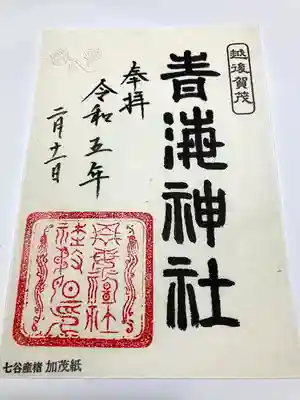 越後賀茂
青海神社
奉拝
令和五年
二月十一日
七谷産楮 加茂紙